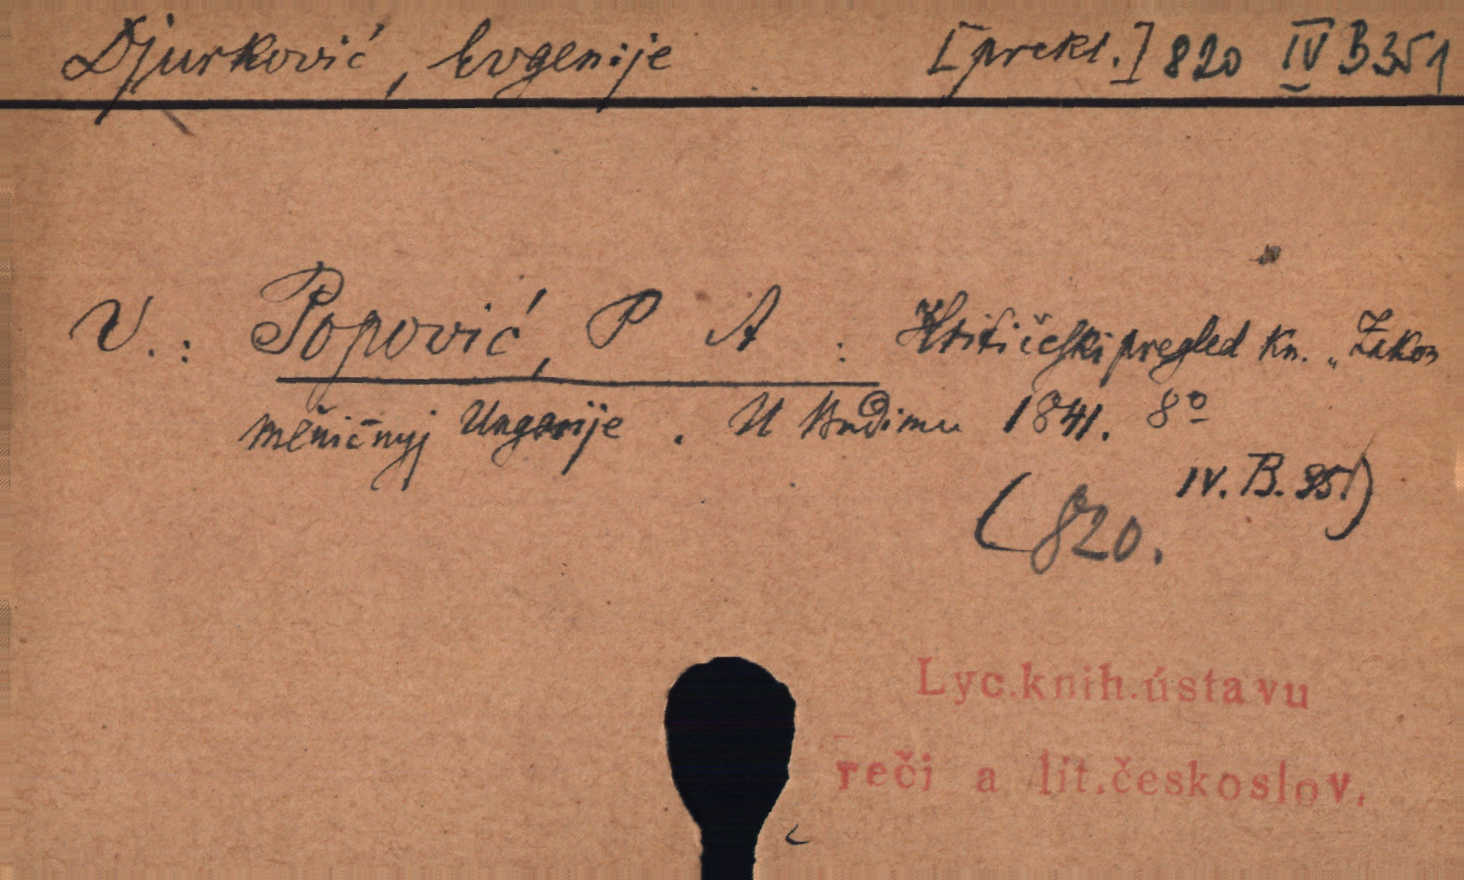 Djurković, Evgenije [prekl.] 820 IV B 351
V.: Popović, P A : Kritičeski pregled kn. „Zakon
měničnyj Ungarije. U Budimu 1841. 8º
IV. B. 351)
(820.
Lyc.knih.ústavu
reči a lit.českoslov.